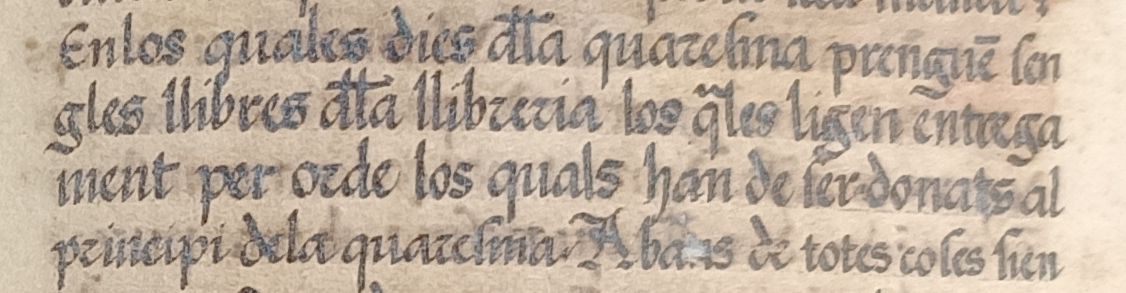 Enlos quales dies dłła quaresma prenguē sen
gles llibres dłła llibreria los q̃les ligen entrega
ment per orde los quals han de ser donats al
principi dela quaresma. Abans de totes coses sien